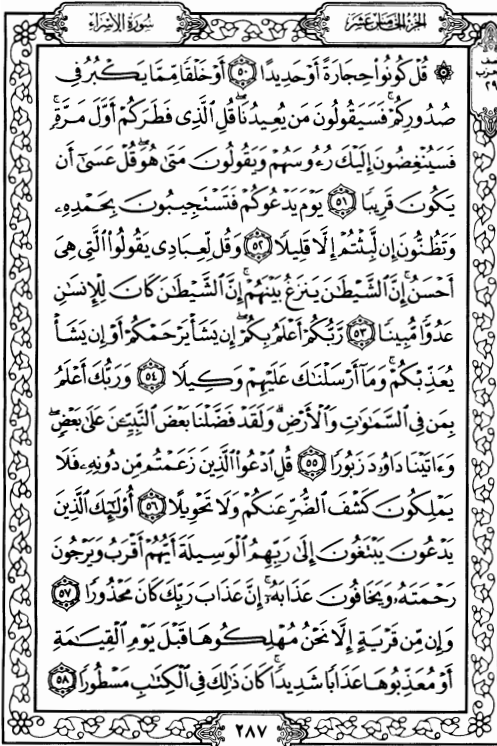 سُورَةُ الإِسْرَاءِ
الجُزْءُ الخَامِسَ عَشَرَ
۞ قُلْ كُونُوا۟ حِجَارَةً أَوْ حَدِيدًا ٥٠ أَوْ خَلْقًا مِّمَّا يَكْبُرُ فِى
صُدُورِكُمْ ۚ فَسَيَقُولُونَ مَن يُعِيدُنَا ۖ قُلِ ٱلَّذِى فَطَرَكُمْ أَوَّلَ مَرَّةٍ ۚ
فَسَيُنْغِضُونَ إِلَيْكَ رُءُوسَهُمْ وَيَقُولُونَ مَتَىٰ هُوَ ۖ قُلْ عَسَىٰٓ أَن
يَكُونَ قَرِيبًا ٥١ يَوْمَ يَدْعُوكُمْ فَتَسْتَجِيبُونَ بِحَمْدِهِۦ
وَتَظُنُّونَ إِن لَّبِثْتُمْ إِلَّا قَلِيلًا ٥٢ وَقُل لِّعِبَادِى يَقُولُوا۟ ٱلَّتِى هِىَ
أَحْسَنُ ۚ إِنَّ ٱلشَّيْطَٰنَ يَنزَغُ بَيْنَهُمْ ۚ إِنَّ ٱلشَّيْطَٰنَ كَانَ لِلْإِنسَٰنِ
عَدُوًّا مُّبِينًا ٥٣ رَّبُّكُمْ أَعْلَمُ بِكُمْ ۖ إِن يَشَأْ يَرْحَمْكُمْ أَوْ إِن يَشَأْ
يُعَذِّبْكُمْ ۚ وَمَآ أَرْسَلْنَٰكَ عَلَيْهِمْ وَكِيلًا ٥٤ وَرَبُّكَ أَعْلَمُ
بِمَن فِى ٱلسَّمَٰوَٰتِ وَٱلْأَرْضِ ۗ وَلَقَدْ فَضَّلْنَا بَعْضَ ٱلنَّبِيِّۦنَ عَلَىٰ بَعْضٍ ۖ
وَءَاتَيْنَا دَاوُۥدَ زَبُورًا ٥٥ قُلِ ٱدْعُوا۟ ٱلَّذِينَ زَعَمْتُم مِّن دُونِهِۦ فَلَا
يَمْلِكُونَ كَشْفَ ٱلضُّرِّ عَنكُمْ وَلَا تَحْوِيلًا ٥٦ أُو۟لَٰٓئِكَ ٱلَّذِينَ
يَدْعُونَ يَبْتَغُونَ إِلَىٰ رَبِّهِمُ ٱلْوَسِيلَةَ أَيُّهُمْ أَقْرَبُ وَيَرْجُونَ
رَحْمَتَهُۥ وَيَخَافُونَ عَذَابَهُۥٓ ۚ إِنَّ عَذَابَ رَبِّكَ كَانَ مَحْذُورًا ٥٧
وَإِن مِّن قَرْيَةٍ إِلَّا نَحْنُ مُهْلِكُوهَا قَبْلَ يَوْمِ ٱلْقِيَٰمَةِ
أَوْ مُعَذِّبُوهَا عَذَابًا شَدِيدًا ۚ كَانَ ذَٰلِكَ فِى ٱلْكِتَٰبِ مَسْطُورًا ٥٨
٢٨٧